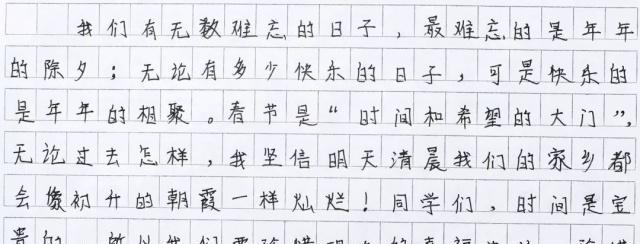 我们有无数难忘的日子，最难忘的是年年
的除夕；无论有多少快乐的日子，可是快乐的
是年年的相聚。春节是“时间和希望的大门”，
无论过去怎样，我坚信明天清晨我们的家乡都
会像初升的朝霞一样灿烂！同学们，时间是宝
贵的 所以我们要珍惜